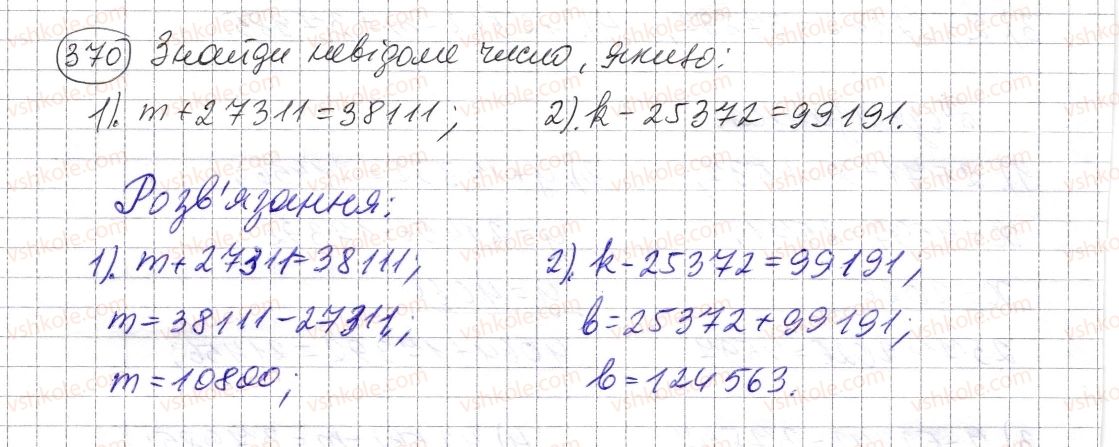 370 Знайди невідоме число, якщо:
1). m + 27311 = 38111; 2). k - 25372 = 99191.
Розв'язання:
1). m + 27311 = 38111; 2). k - 25372 = 99191;
m = 38111 - 27311; в = 25372 + 99191;
m = 10800; в = 124563.